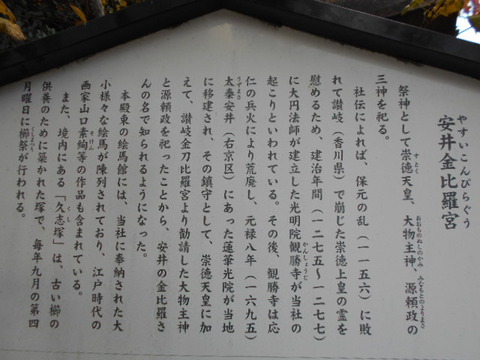 やすいこんぴらぐう
安井金比羅宮
祭神として崇徳天皇、大物主神、源頼政の
三神を祀る。
社伝によれば、保元の乱（一一五六）に敗
れて讃岐（香川県）で崩じた崇徳上皇の霊を
慰めるため、建治年間（一二七五～一二七七）
に大円法師が建立した光明院観勝寺が当社の
起こりといわれている。その後、観勝寺は応
仁の兵火により荒廃し、元禄八年（一六九五）
太秦安井（右京区）にあった蓮華光院が当地
に移建され、その鎮守として、崇徳天皇に加
えて、讃岐金刀比羅宮より勧請した大物主神
と源頼政を祀ったことから、安井の金比羅さ
んの名で知られるようになった。
本殿東の絵馬館には、当社に奉納された大
小様々な絵馬が陳列されており、江戸時代の
画家山口素絢等の作品も含まれている。
また、境内にある「久志塚」は、古い櫛の
供養のために築かれた塚で、毎年九月の第四
月曜日に櫛祭が行われる。